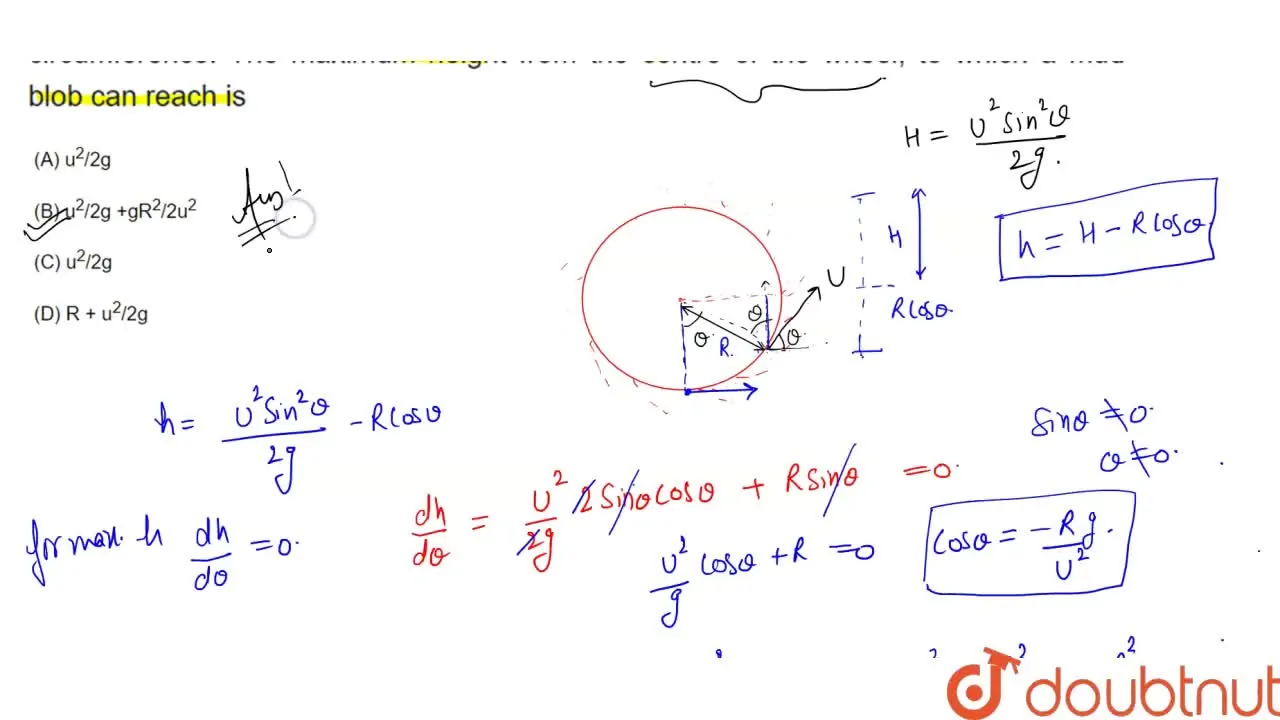 circumference. The maximum height from the centre of the wheel, to which a mud
blob can reach is
(A) u²/2g
(B) u²/2g +gR²/2u²
(C) u²/2g
(D) R + u²/2g
Ans!
H = U² Sin²θ / 2g.
h = H - R Cosθ
H
R Cosθ
U
θ
θ
θ
R.
h = U² Sin²θ / 2g - R Cosθ
Sinθ ≠ 0.
θ ≠ 0.
for max. h dh/dθ = 0.
dh/dθ = U²/2g 2 Sinθ Cosθ + R Sinθ = 0.
U²/g Cosθ + R = 0
Cosθ = -Rg/U².
doubtnut